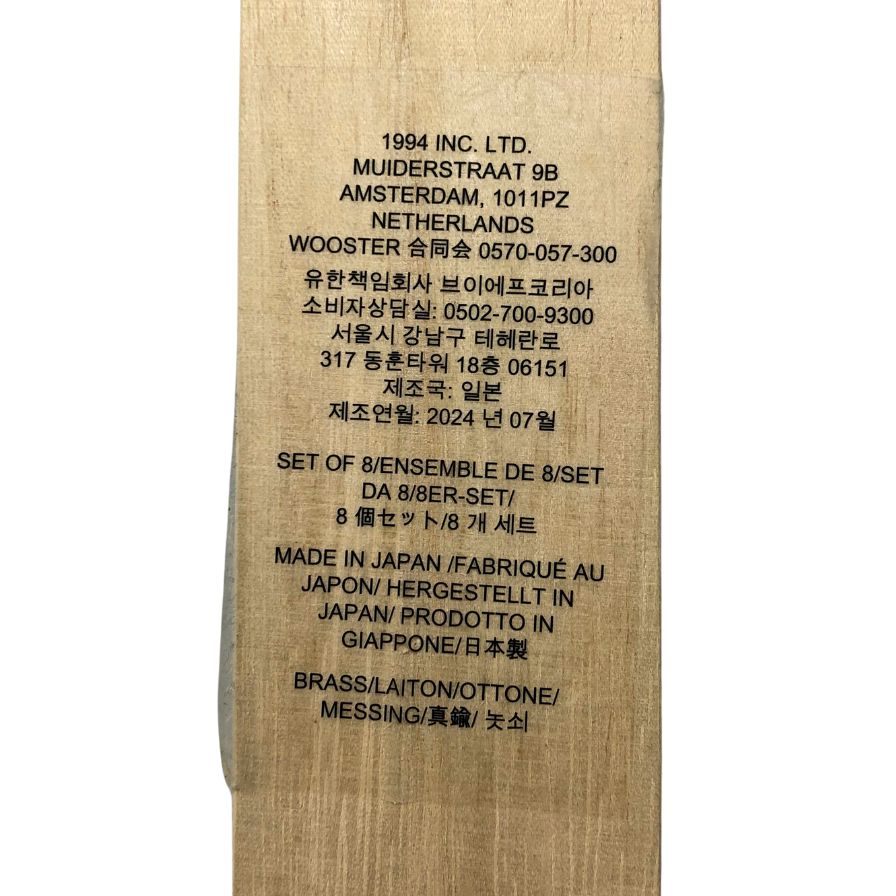 1994 INC. LTD.
MUIDERSTRAAT 9B
AMSTERDAM, 1011PZ
NETHERLANDS
WOOSTER 合同会 0570-057-300
유한책임회사 브이에프코리아
소비자상담실: 0502-700-9300
서울시 강남구 테헤란로
317 동훈타워 18층 06151
제조국: 일본
제조연월: 2024 년 07월
SET OF 8/ENSEMBLE DE 8/SET
DA 8/8ER-SET/
8 個セット/8 개 세트
MADE IN JAPAN /FABRIQUÉ AU
JAPON/ HERGESTELLT IN
JAPAN/ PRODOTTO IN
GIAPPONE/日本製
BRASS/LAITON/OTTONE/
MESSING/真鍮/ 놋쇠